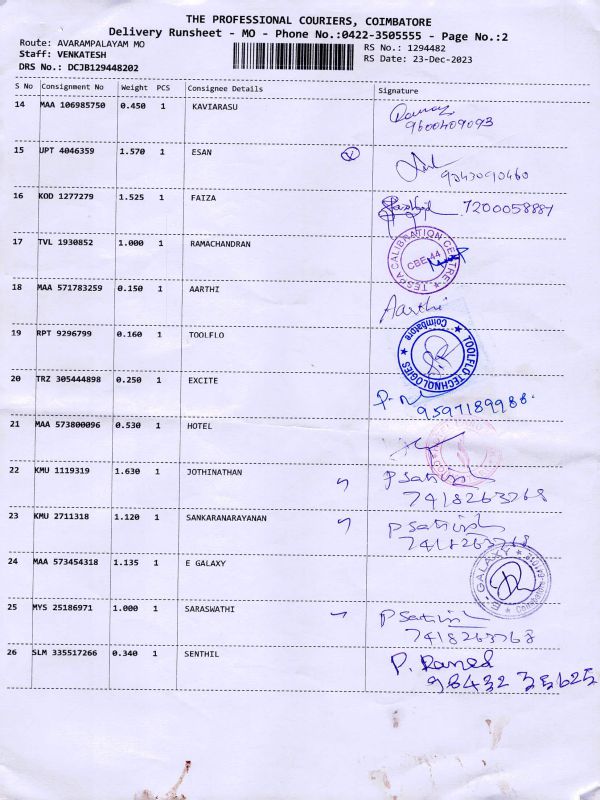 THE PROFESSIONAL COURIERS, COIMBATORE
Delivery Runsheet - MO - Phone No.:0422-3505555 - Page No.:2
Route: AVARAMPALAYAM MO
RS No.: 1294482
Staff: VENKATESH
RS Date: 23-Dec-2023
DRS No.: DCJB129448202
S No Consignment No Weight PCS Consignee Details Signature
14 MAA 106985750 0.450 1 KAVIARASU
9600409093
15 UPT 4046359 1.570 1 ESAN
9243090460
16 KOD 1277279 1.525 1 FAIZA 7200058884
17 TVL 1930852 1.000 1 RAMACHANDRAN
TESCA CALIBRATION CENTRE
CBE-44
18 MAA 571783259 0.150 1 AARTHI
Aarthi
19 RPT 9296799 0.160 1 TOOLFLO
TOOLFLO TECHNOLOGIES
Coimbatore
20 TRZ 305444898 0.250 1 EXCITE
9597189988.
21 MAA 573800096 0.530 1 HOTEL
22 KMU 1119319 1.630 1 JOTHINATHAN
P Satish
7418263768
23 KMU 2711318 1.120 1 SANKARANARAYANAN
P Satish
7418263768
24 MAA 573454318 1.135 1 E GALAXY
E-GALAXY
Coimbatore
25 MYS 25186971 1.000 1 SARASWATHI
P Satish
7418263768
26 SLM 335517266 0.340 1 SENTHIL
98432 35625